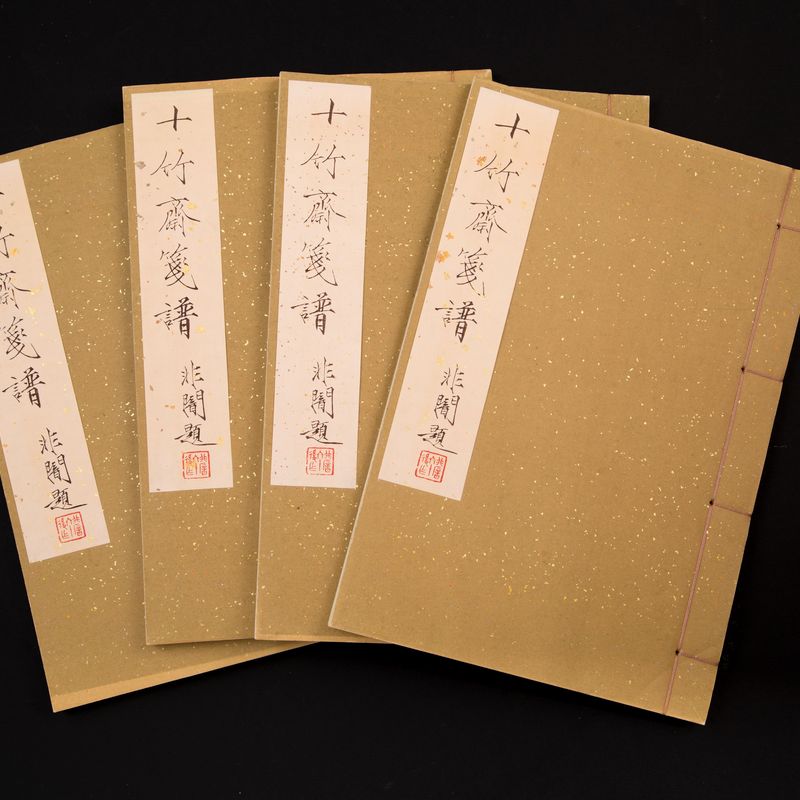 十竹齋箋譜
非闇題
十竹齋箋譜
非闇題
十竹齋箋譜
非闇題
竹齋箋譜
非闇題